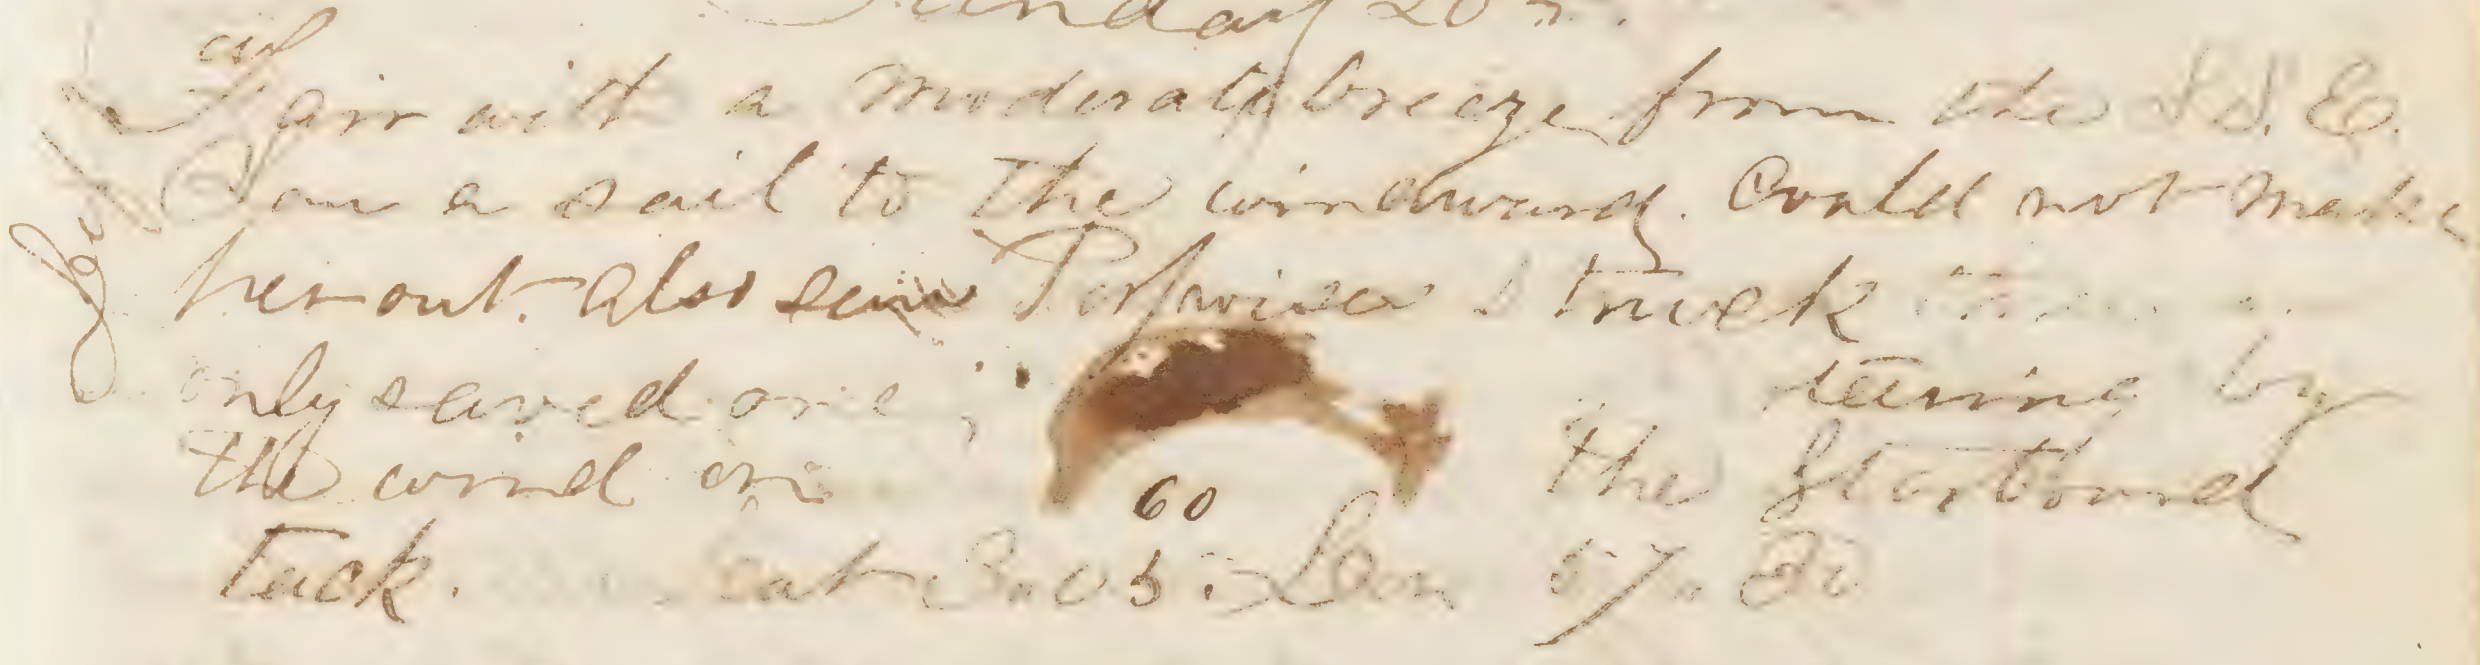 Sunday 20th
Fair with a moderate breeze from the S.S.E.
Saw a sail to the windward. Could not make
her out. Also seen Porpoises struck
only saved one, stearing by
the wind on 60 the Starboard
tack. Lat 3.05. Lon 57.20